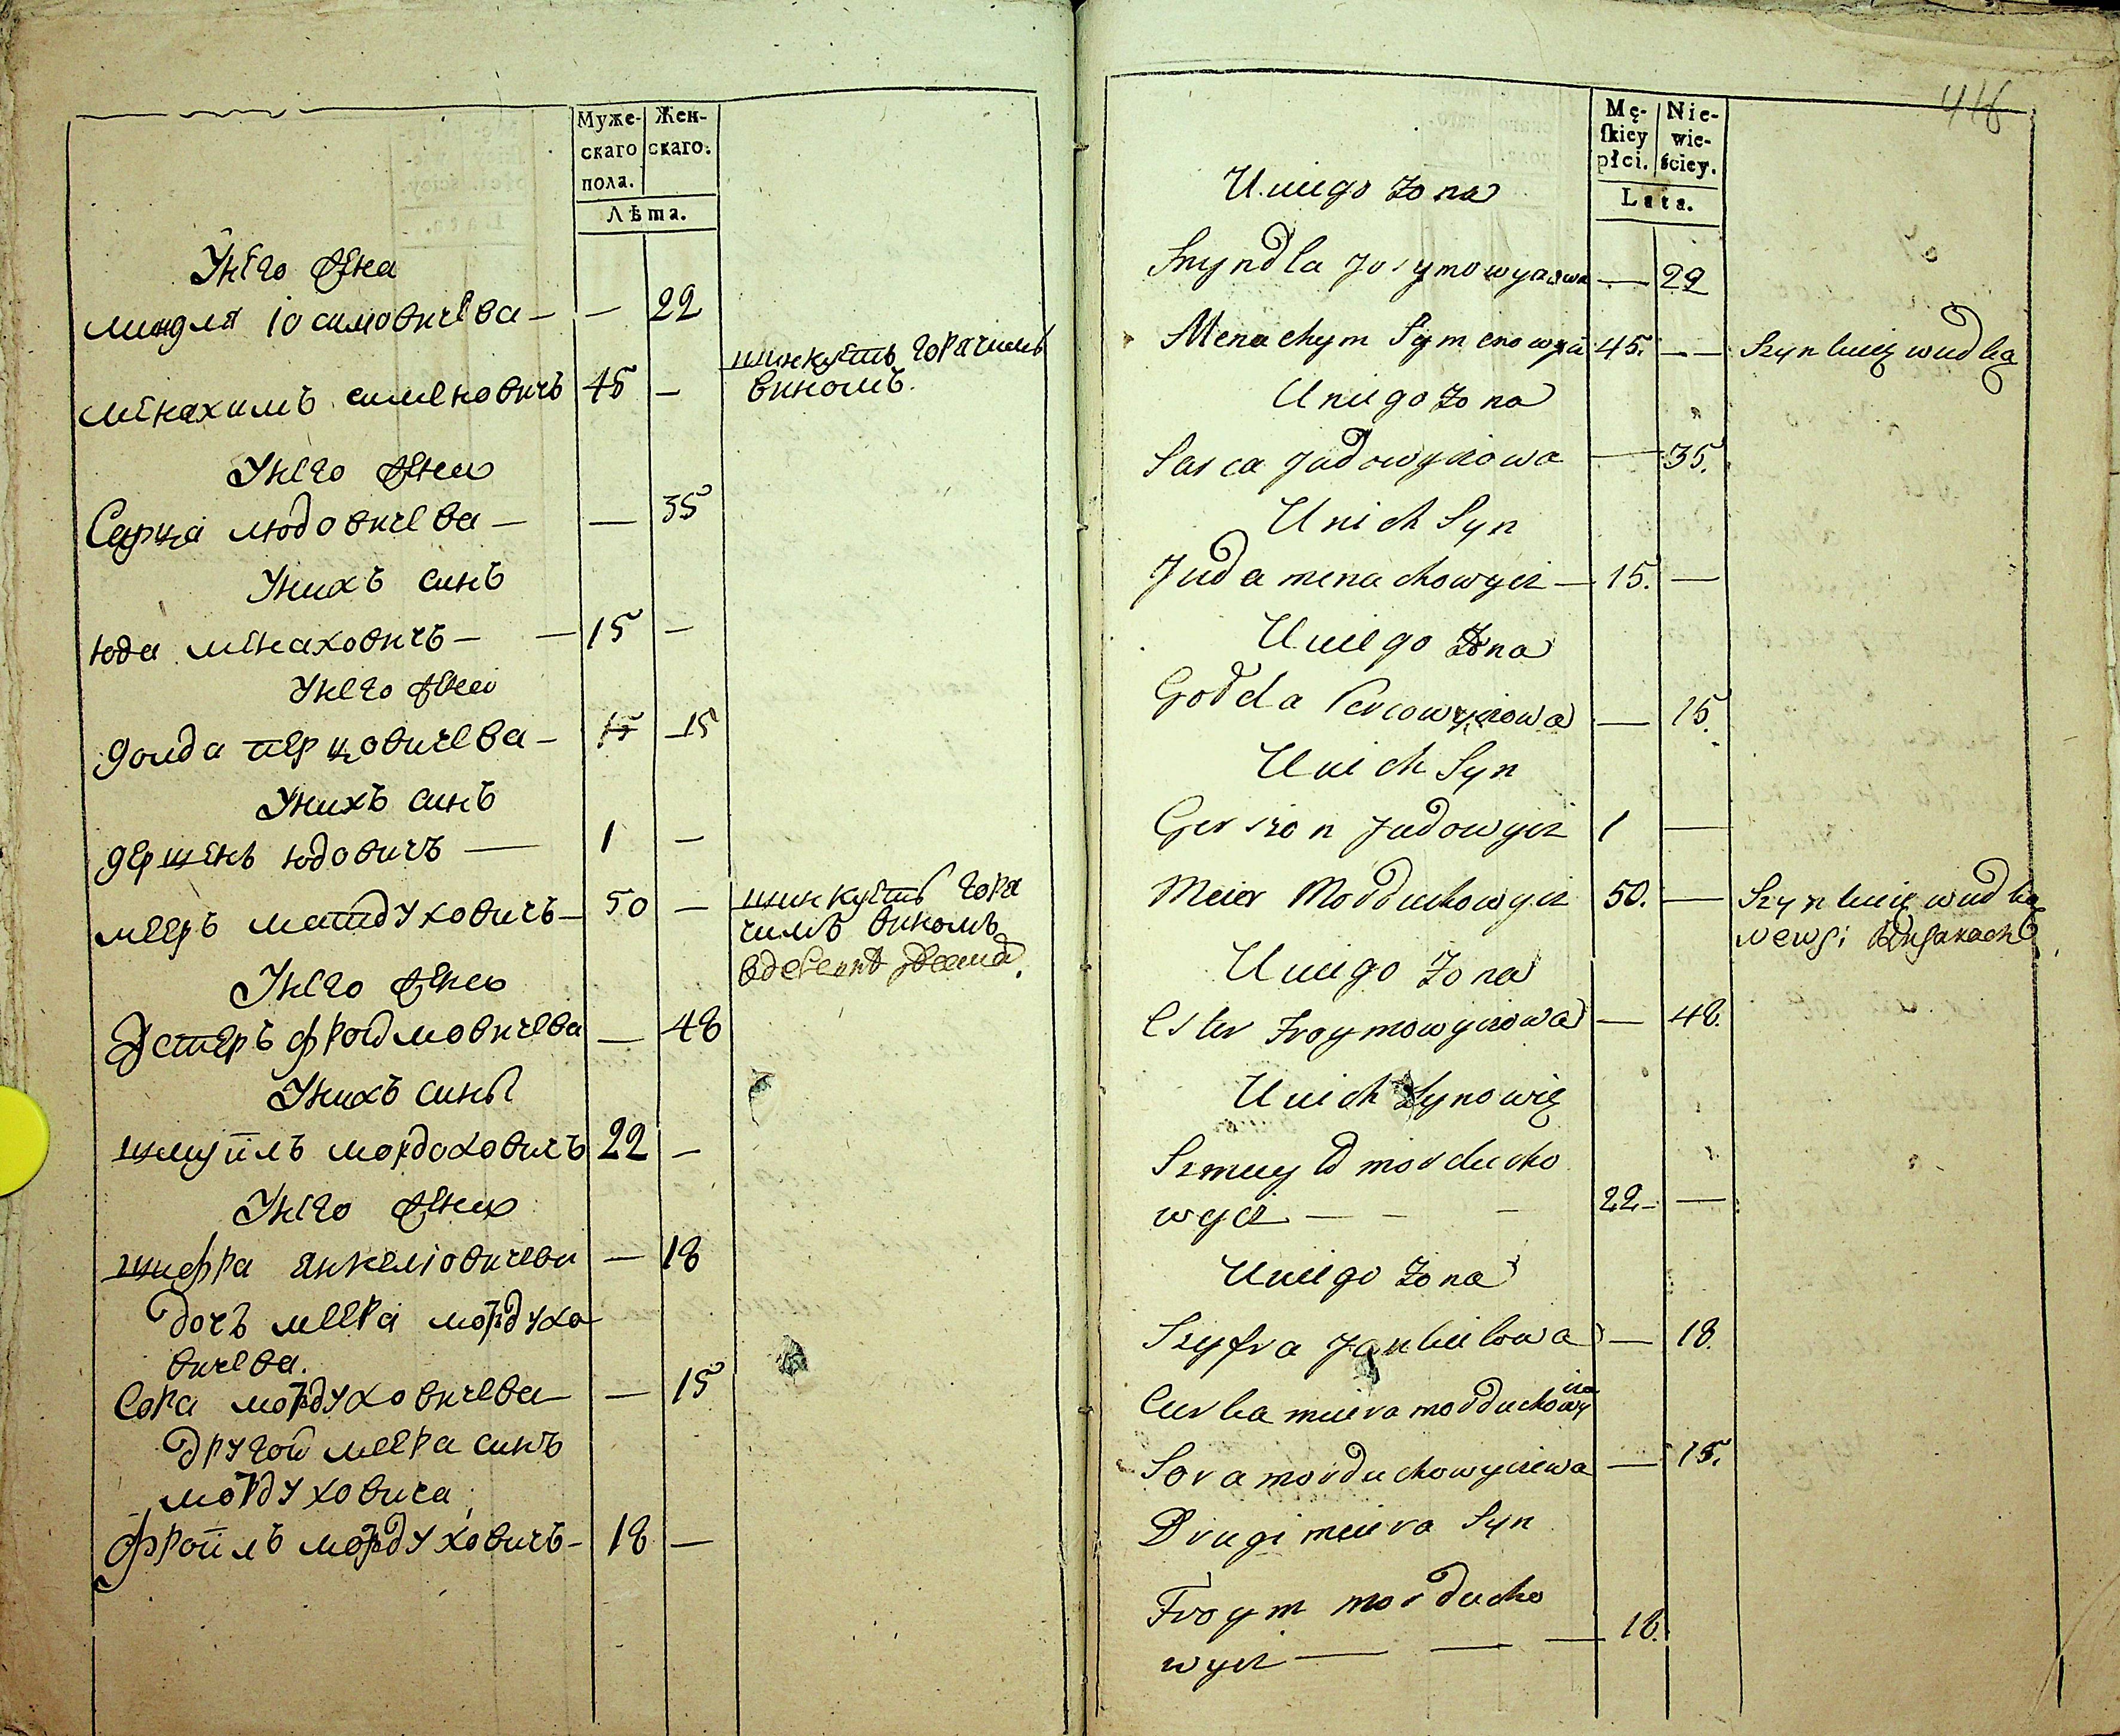 Муже-
скаго
пола.
Жен-
скаго.
Лѣта.
Унего жена
миндля іосимовичева — — 22
менахимъ сименовичъ 45 — шинкуетъ горачимъ
виномъ.
Унего жена
Сарца июдовичева — — 35
Унихъ синъ
юда менаховичъ — — 15 —
Унего жена
голда перцовичева — 15 15
Унихъ синъ
гершенъ юдовичъ — 1 —
мееръ мардуховичъ — 50 — шинкуетъ гора
чимъ виномъ
в деревне
Унего жена
Эстеръ фроймовичева — 48
Унихъ сины
шмуйлъ мордоховичъ 22 —
Унего жена
шифра янкеліовичева — 18
дочъ меера мордухо
вичева.
Сора мордуховичева — — 15
другой меера синъ
мордуховича
фроймъ мордуховичъ — 18 —
418
Mę-
ſkiey
płci.
Nie-
wie-
ściey.
Lata.
U niego Żona
Myndla Josymowyczowa — 22
Menachym Symenowycz 45. — Szynkuię wudką
U niego Żona
Sarca Judowyczowa — 35.
U nich Syn
Juda menachowycz — 15. —
U niego Żona
Golda Percowyczowa — 15.
U nich Syn
Gerszon Judowycz 1 —
Meier Morduchowycz 50. — Szynkuię wudką
we wsi
U niego Żona
Ester Froymowyczowa — 48.
U nich Synowię
Szmuyl morducho
wycz — — — 22 — —
U niego Żona
Szyfra Jankielowa — 18.
Curka meiera morduchowycza
Sora morduchowyczewa — 15.
Drugi meiera Syn
Froym morducho
wycz — — — 18.